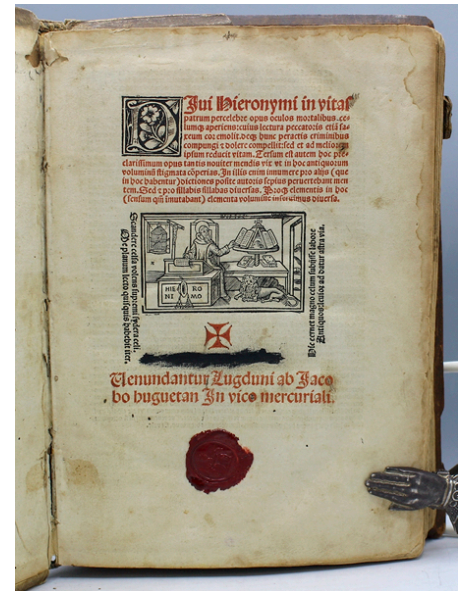 Diui Hieronymi in vitas
patrum percelebre opus oculos mortalibus ce-
lumq; aperiens: cuius lectura peccatoris etiã sa-
xeum cor emolit. deq; hunc peractis criminibus
compungi & dolere compellit: sed et ad meliorem
ipsum reducit vitam. Tersum est autem hoc pre-
clarissimum opus tantis nouiter mendis vix vt in hoc antiquorum
voluminũ stigmata cõperias. In illis enim innumere pro alijs (que
in hoc habentur) dictiones posite autoris sepius peruertebant men
tem. Sed & pro sillabis sillabas diuersas. Proq; elementis in hoc
(sensum qm̃ imutabant) elementa diuersa.
Scandere celsa volens supremi sydera celi.
Hoc planum lecto quisquis habebit iter.
HIE RO
NI MO
Hic cernet magno celum subijsse labore
Antiquos: letuos ad datur astra via.
Uenundantur Lugduni ab Jaco
bo huguetan In vico mercuriali.